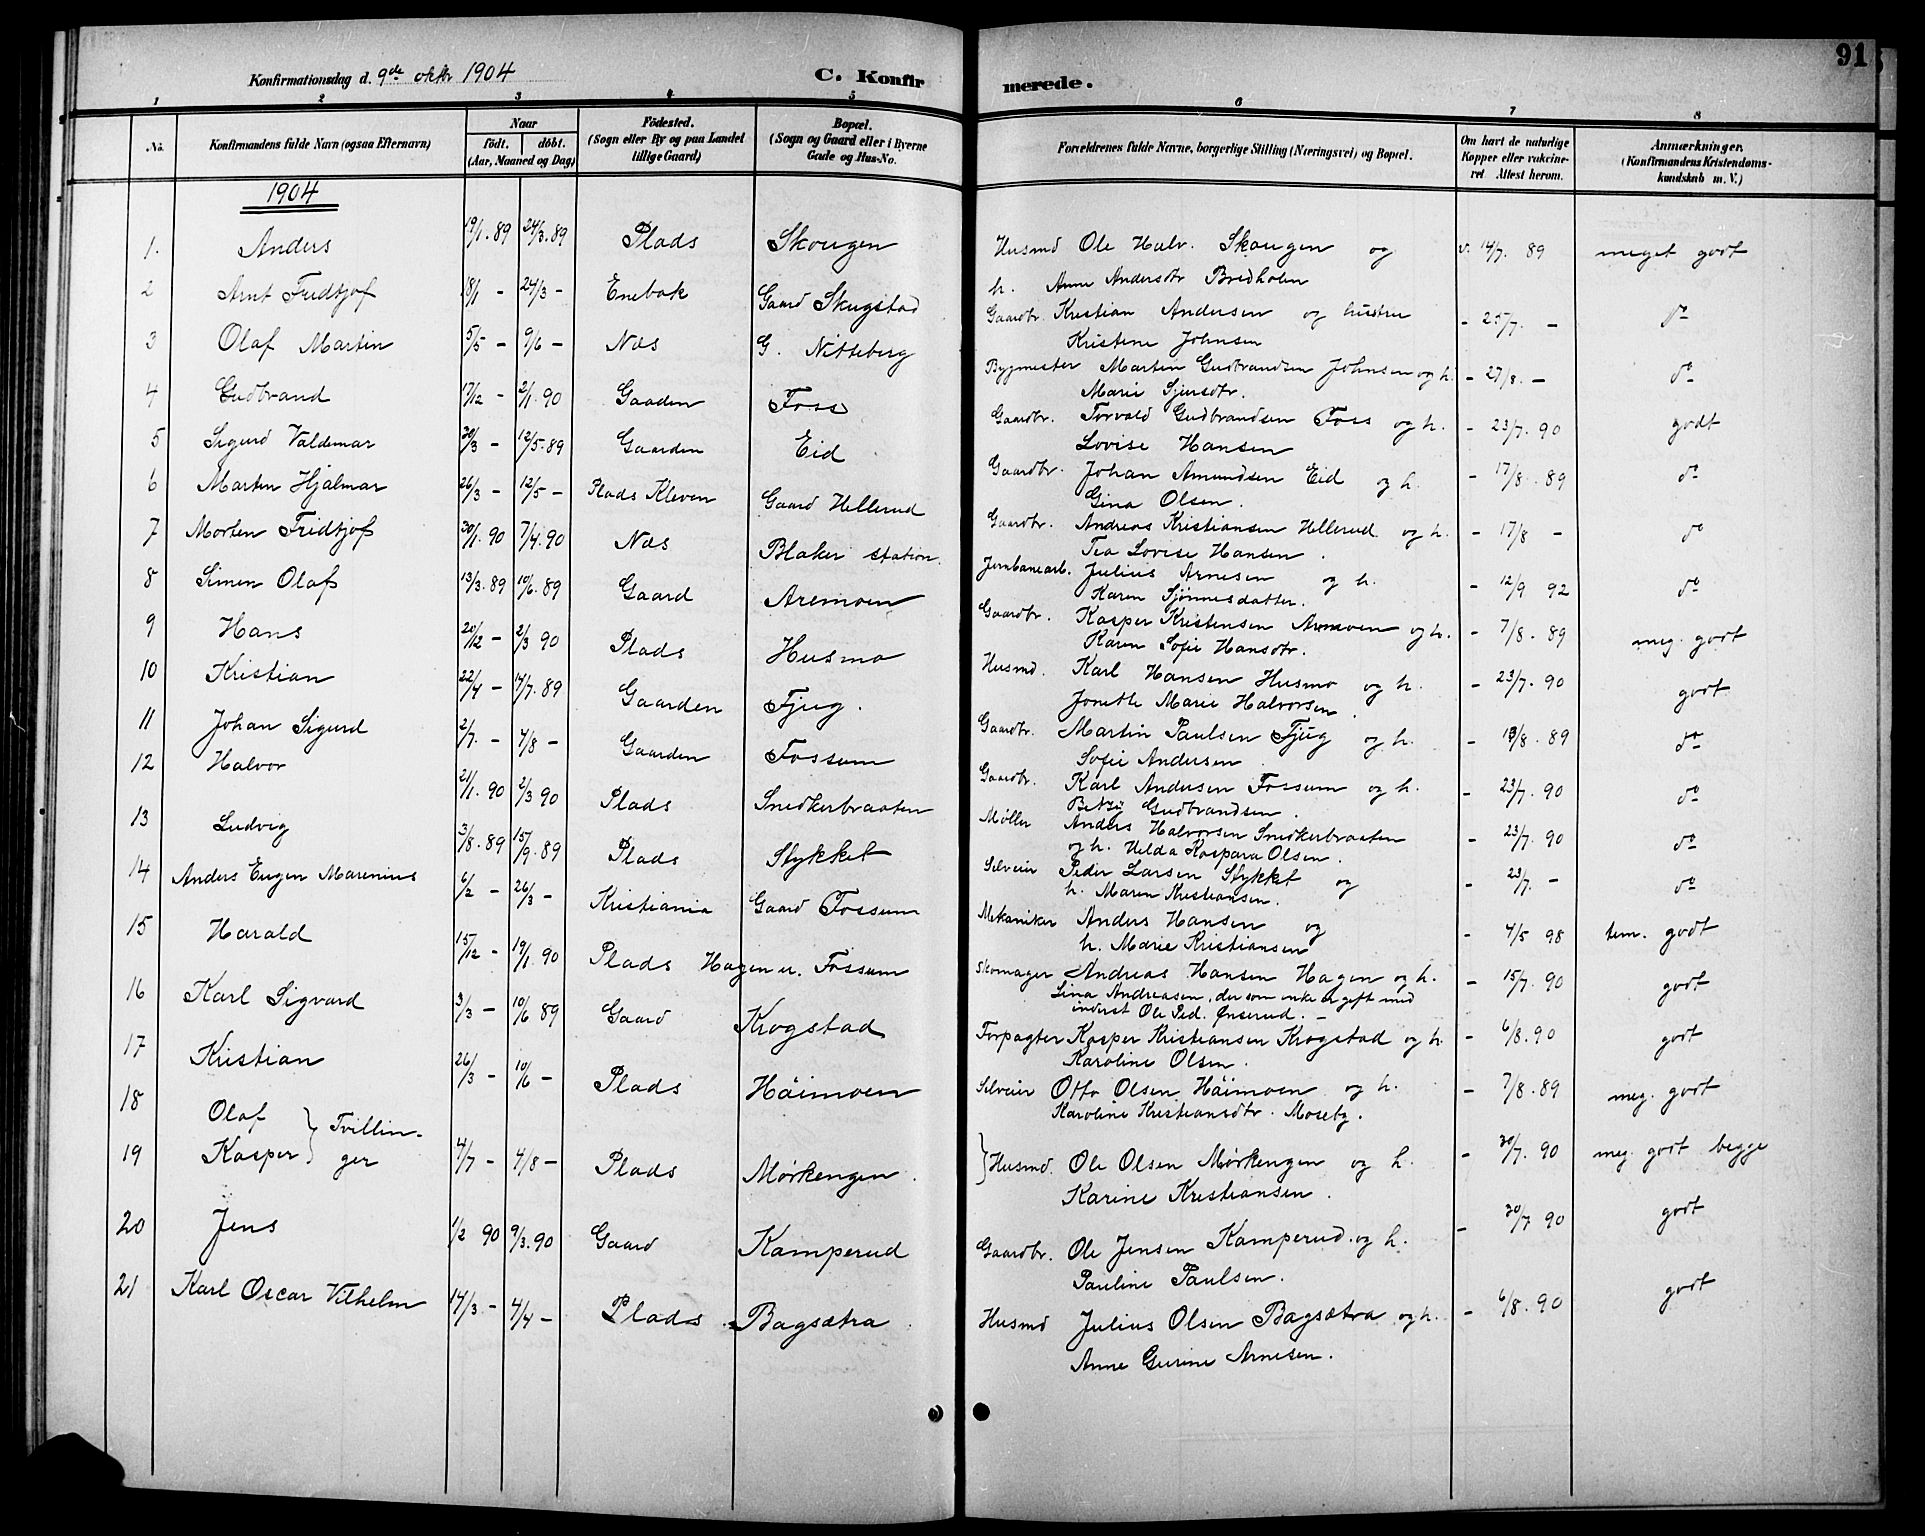 91
Konfirmationsdag d. 9de oktbr 1904 C. Konfirmerede.
1 2 3 4 5 6 7 8
No. Konfirmandens fulde Navn (ogsaa Efternavn) Naar födt. döbt. (Aar, Maaned og Dag) Födested. (Sogn eller By og paa Landet tillige Gaard) Bopæl. (Sogn og Gaard eller i Byerne Gade og Hus-No. Forældrenes fulde Navne, borgerlige Stilling (Næringsvei) og Bopæl. Om havt de naturlige Kopper eller vakcineret Attest herom. Anmærkninger. (Konfirmandens Kristendomskundskab m. V.)
1904
1. Anders 19/1. 89 24/3. 89 Plads Skougen Husmd Ole Halv. Skougen og v. 14/7. 89 meget godt
h. Anne Andersdtr Bredholen
2 Arnt Fridtjof 18/1 - 24/3 - Enebak Gaard Skugstad Gaardbr. Kristian Andersen og hustru - 25/7. - do
Kristene Johnsen
3 Olaf Martin 5/5 - 9/6 - Næs G. Nitteberg Bygmester Martin Gudbrandsen Johnsen og h. - 27/8. - do
Marie Sjursdtr.
4 Gudbrand 17/12 - 2/1. 90 Gaaden Foss Gaardbr. Torvald Gudbrandsen Foss og h. - 23/7. 90 godt
Lovise Hansen
5 Sigurd Valdemar 30/3 - 12/5. 89 Gaarden Eid Gaardbr. Johan Amundsen Eid og h. - 17/8. 89 do
Gina Olsen.
6 Marten Hjalmar 26/3 - 12/5 - Plads Kleven Gaard Hellerud Gaardbr. Andreas Kristiansen Hellerud og h. - 17/8 - do
Tea Lovise Hansen.
7 Morten Fridtjof 30/1. 90 7/4. 90 Næs Blaker station. Jernbanearb. Julius Arnesen og h. - 12/9 92 do
Karen Sjønnesdatter.
8 Simen Olaf 13/3. 89 10/6. 89 Gaard Aremoen Gaardbr. Kasper Kristensen Aremoen og h. - 7/8. 89 meg. godt
Karen Sofie Hansdtr.
9 Hans 20/12 - 2/3 90 Plads Husmo Husmd. Karl Hansen Husmo og h. - 23/7. 90 godt
Jonette Marie Halvorsen.
10 Kristian 22/4 - 14/7. 89 Gaarden Fjug. Gaardbr. Martin Paulsen Fjug og h. - 18/8. 89 do
Sofie Andersen.
11 Johan Sigurd 2/7. - 4/8 - Gaarden Fossum Gaardbr. Karl Andersen Fossum og h. - 23/7. 90 do
Betzy Gudbrandsen.
12 Halvor 21/1. 90 2/3 90 Plads Snedkerbraaten Møller Anders Halvorsen Snedkerbraaten - 23/7. 90 do
og h. Helda Kaspara Olsen.
13 Ludvig 3/8. 89 15/9. 89 Plads Stykket Selveier Peder Larsen Stykket og - 23/7. - do
h. Maren Kristiansen.
14 Anders Eugen Marenius 6/2 - 26/3 - Kristiania Gaard Fossum Mekaniker Anders Hansen og - 4/5 98 tem. godt
h. Marie Kristiansen
15 Harald 15/12 - 19/1. 90 Plads Hagen u. Fossum Skomager Andreas Hansen Hagen og h. - 15/7. 90 godt
Lina Andreasen, der som enke er gift med
inderst Ole Ped. Ønserud. -
16 Karl Sigvard 3/3 - 10/6 89 Gaard Krogstad Forpagter Kasper Kristiansen Krogstad og h. - 6/8. 90 godt
Karoline Olsen.
17 Kristian 26/3 - 10/6 - Plads Høimoen Selveier Otto Olsen Høimoen og h. - 7/8. 89 meg. godt
Karoline Kristiansdtr. Moseby.
18 Olaf } Tvillin-
19 Kasper } ger 4/7 - 4/8 - Plads Mørkengen. } Husmd. Ole Olsen Mørkengen og h. - 30/7. 90 meg. godt begge
Karine Kristiansen.
20 Jens 1/2 90 9/3. 90 Gaard Kamperud Gaardbr. Ole Jensen Kamperud. og h. - 30/7 90 godt
Pauline Paulsen.
21 Karl Oscar Vilhelm 14/3 - 4/4 - Plads Bagsætra Husmd Julius Olsen Bagsætra og h. - 6/8. 90 godt
Anne Gurine Arnesen.